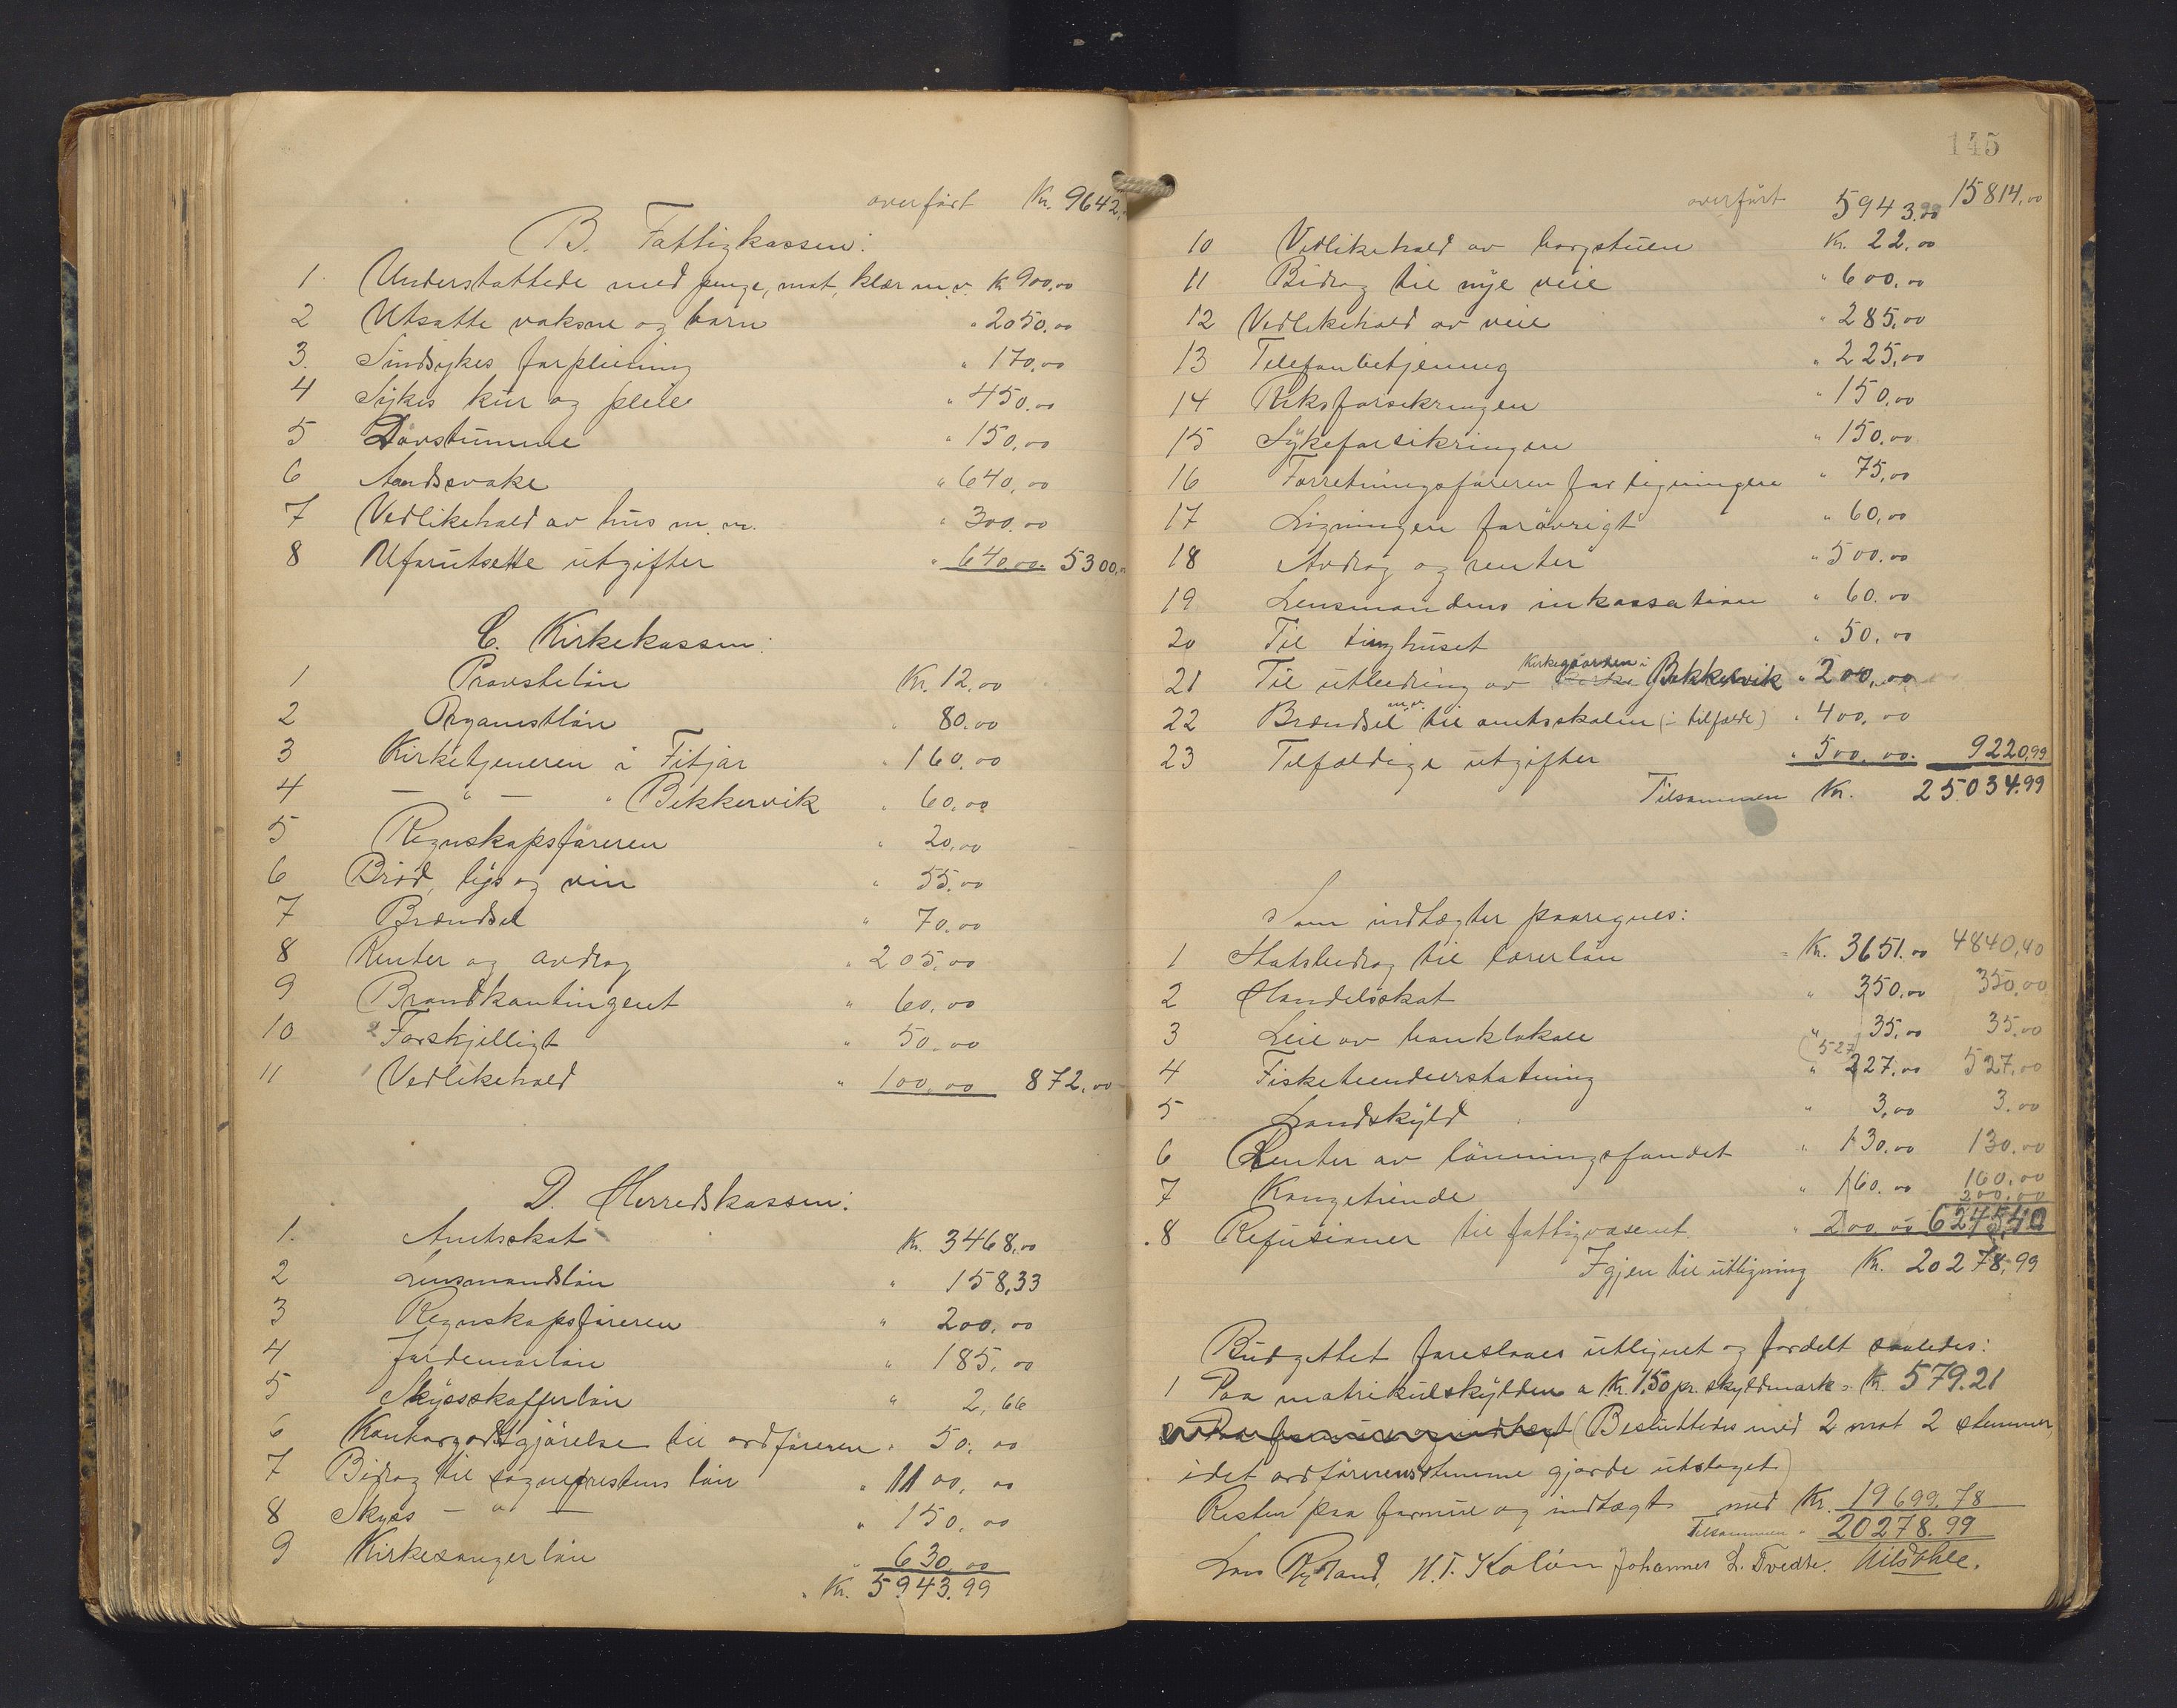 overført Kr. 9642,
B. Fattigkassen:
1 Understøttede med penge, mat, klær m.v. Kr 900,00
2 Utsatte voksne og barn " 2050,00
3. Sindsykes forpleining " 170,00
4 Sykes kur og pleie " 450,00
5 Døvstumme " 150,00
6 Aandssvake " 640,00
7 Vedlikehold av hus m.m. " 300,00
8 Uforutsette utgifter " 640,00. 5300,
C. Kirkekassen:
1 Provsteløn Kr. 12,00
2 Organistløn " 80,00
3 Kirketjeneren i Fitjar " 160,00
4 — " — " Bekkervik " 60,00
5 Regnskapsføreren " 20,00
6 Brød, lys og vin " 55,00
7 Brændsel " 70,00
8 Renter og avdrag " 205,00
9 Brandkontingent " 60,00
10 Forskjelligt " 50,00
11 Vedlikehold " 100,00 872,00
D. Herredskassen:
1. Amtsskat Kr. 3468,00
2 Lensmandsløn " 158,33
3 Regnskapsføreren " 200,00
4 Jordemorløn " 185,00
5 Skysskafferløn " 2,66
6 Kontorgodtgjørelse til ordføreren " 50,00
7 Bidrag til sogneprestens løn " 1100,00
8 Skyss — " — " 150,00
9 Kirkesangerløn " 630,00
Kr. 5943.99
145
overført 5943.99 15814,00
10 Vedlikehold av borgstuen Kr. 22,00
11 Bidrag til nye veie " 600,00
12 Vedlikehold av veie " 285,00
13 Telefonbetjening " 225,00
14 Riksforsikringen " 150,00
15 Sykeforsikringen " 150,00
16 Forretningsføreren for ligningen " 75,00
17 Ligningen forøvrigt " 60,00
18 Avdrag og renter " 500,00
19 Lensmandens inkassation " 60,00
20 Til tinghuset " 50,00
21 Til utbedring av Kirkegaarden i Bekkervik " 200,00
22 Brændsel m.v. til amtsskolen (i tilfælde) " 400,00
23 Tilfældige utgifter " 500,00. 9220,99
Tilsammen Kr. 25034.99
Som indtægter paaregnes:
1 Statsbidrag til lærerløn = Kr. 3651.00 4840,40
2 Handelsskat " 350,00 350,00
3 Leie av banklokale " 35,00 35,00
4 Fisketiendeerstatning (527) " 227,00 527,00
5 Landskyld " 3,00 3.00
6 Renter av lønningsfondet " 130,00 130.00
7 Kongetiende " 160.00 160,00
200,00
8 Refusioner til fattigvæsenet " 200 00 6245,40
Igjen til utligning Kr. 20278,99
Budgettet foreslaaes utlignet og fordelt saaledes:
1 Paa matrikulskylden a Kr. 1,50 pr. skyldmark = Kr. 579.21
(Besluttedes med 2 mot 2 stemmer,
idet ordførerens stemme gjorde utslaget)
Resten paa formue og indtægt med Kr. 19699.78
Tilsammen " 20278.99
Lars Rydland, H.T. Koløen Johannes L. Tvedte. Nils Vhle.